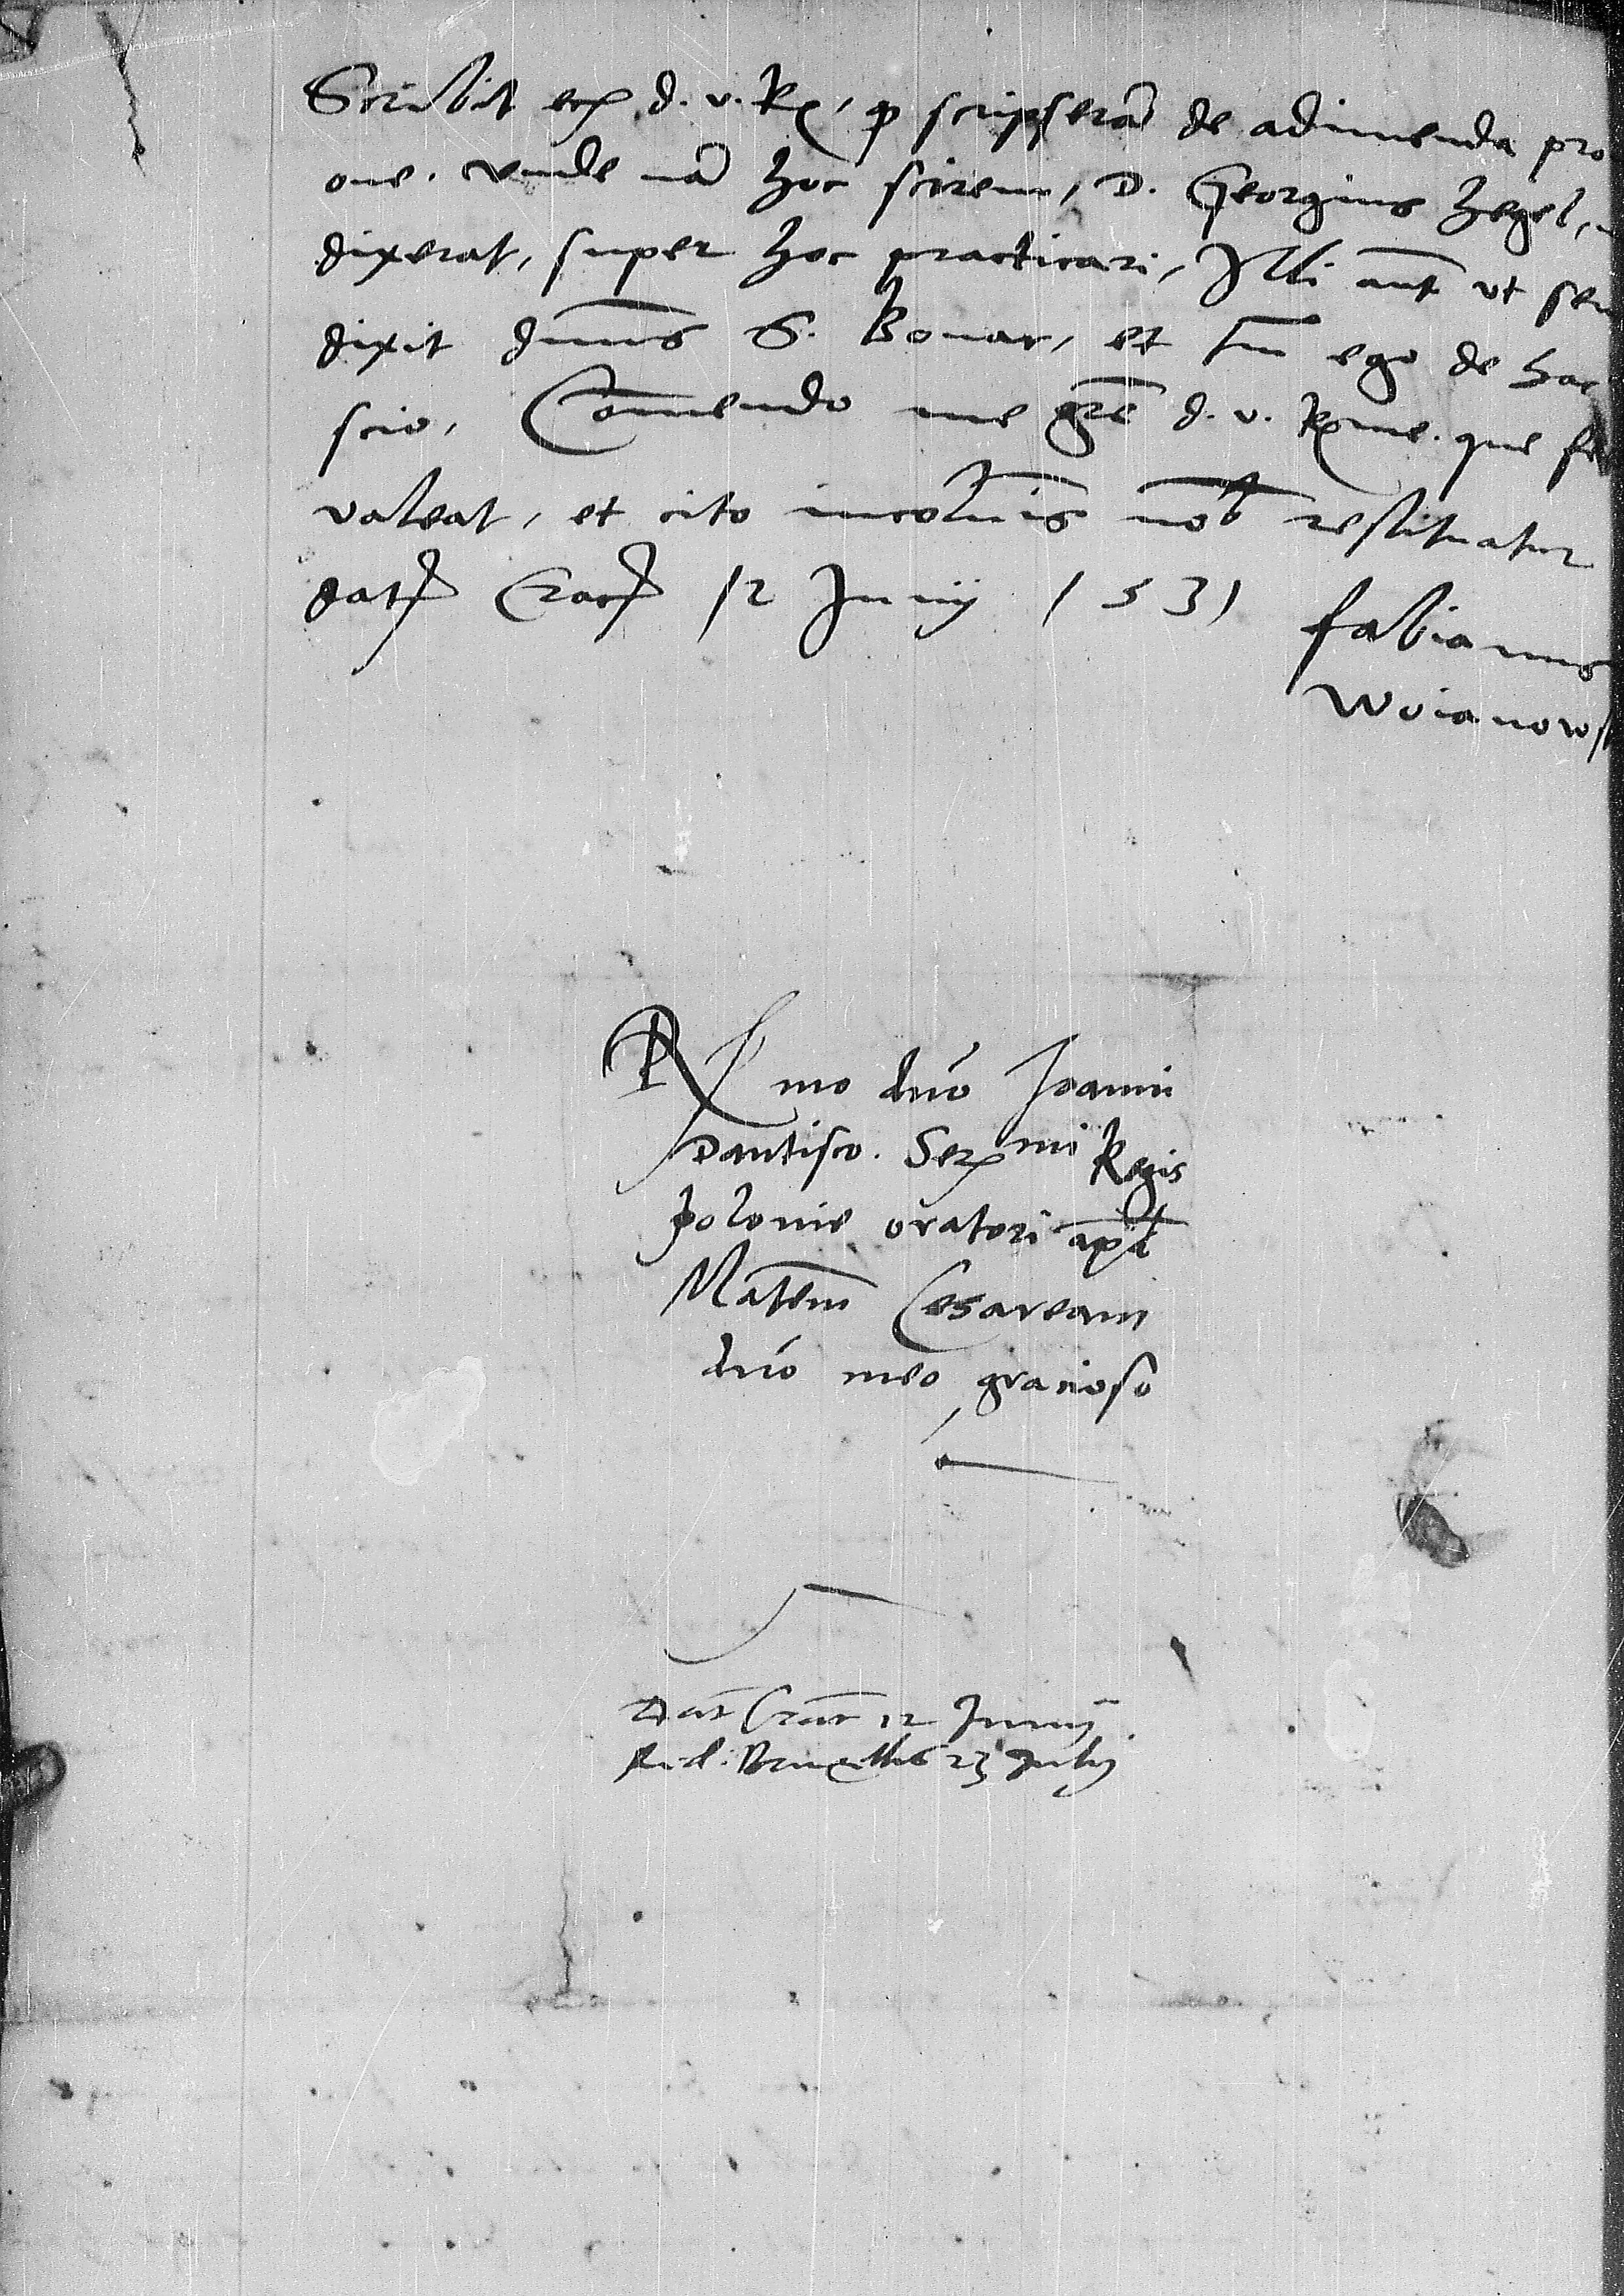 Scribit ex d. v. R, qp scripserā de adimenda pro
one. Vnde nā hoc scirem, D. Georgius hegel,
dixerat, super hoc practicari, Illi aut̄ vt
dixit dn̄us S. Bonar, et ego de hac
scio. Com̄endo me gr̄e d. v. R̄me. que
valeat, et cito incolumis nob̄ restituatur
dat̄ Crac̄ 12 Junij 1531
Fabianus
Woianows
R mo dn̄o Joanni
Dantisco. Ser mi Regis
polonie oratori ap̄d
Matem̄ Cesaream
dn̄o meo gracioso
Dat̄ Crac̄ 12 Junij.
Red: Bruxellis 23 Julij